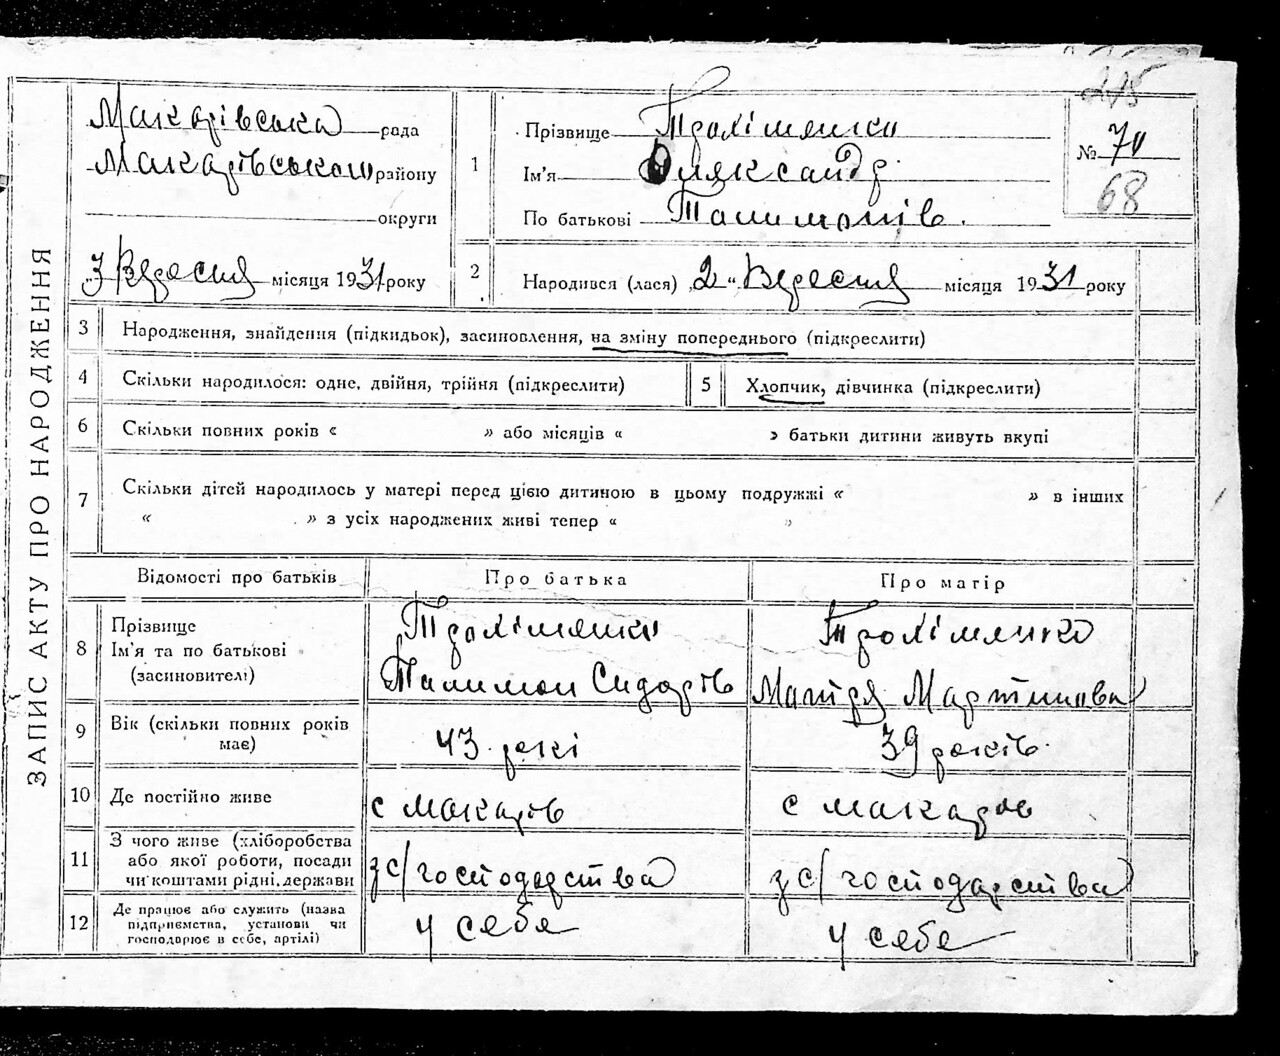 ЗАПИС АКТУ ПРО НАРОДЖЕННЯ
215
Макарівська рада
Макарівського району
округи
„3 Вересня місяця 1931 року
1
Прізвище Трохіменко
Ім'я Олександр
По батькові Талимонів.
№ 70
68
2
Народився (лася) „2“ Вересня місяця 1931 року
3
Народження, знайдення (підкидьок), засиновлення, на зміну попереднього (підкреслити)
4
Скільки народилося: одне, двійня, трійня (підкреслити)
5
Хлопчик, дівчинка (підкреслити)
6
Скільки повних років « » або місяців « » батьки дитини живуть вкупі
7
Скільки дітей народилось у матері перед цією дитиною в цьому подружжі « » в інших
« » з усіх народжених живі тепер « »
Відомості про батьків
Про батька
Про матір
8
Прізвище
Ім'я та по батькові
(засиновителі)
Трохіменко
Талимон Сидорів
Трохіменко
Мотря Мартинова
9
Вік (скільки повних років
має)
43 рокі
39 років
10
Де постійно живе
с Макарів
с Макарів
11
З чого живе (хліборобства
або якої роботи, посади
чи коштами рідні, держави
з с/господарства
з с/господарства
12
Де працює або служить (назва
підприємства, установи чи
господорює в себе, артілі)
у себе
у себе